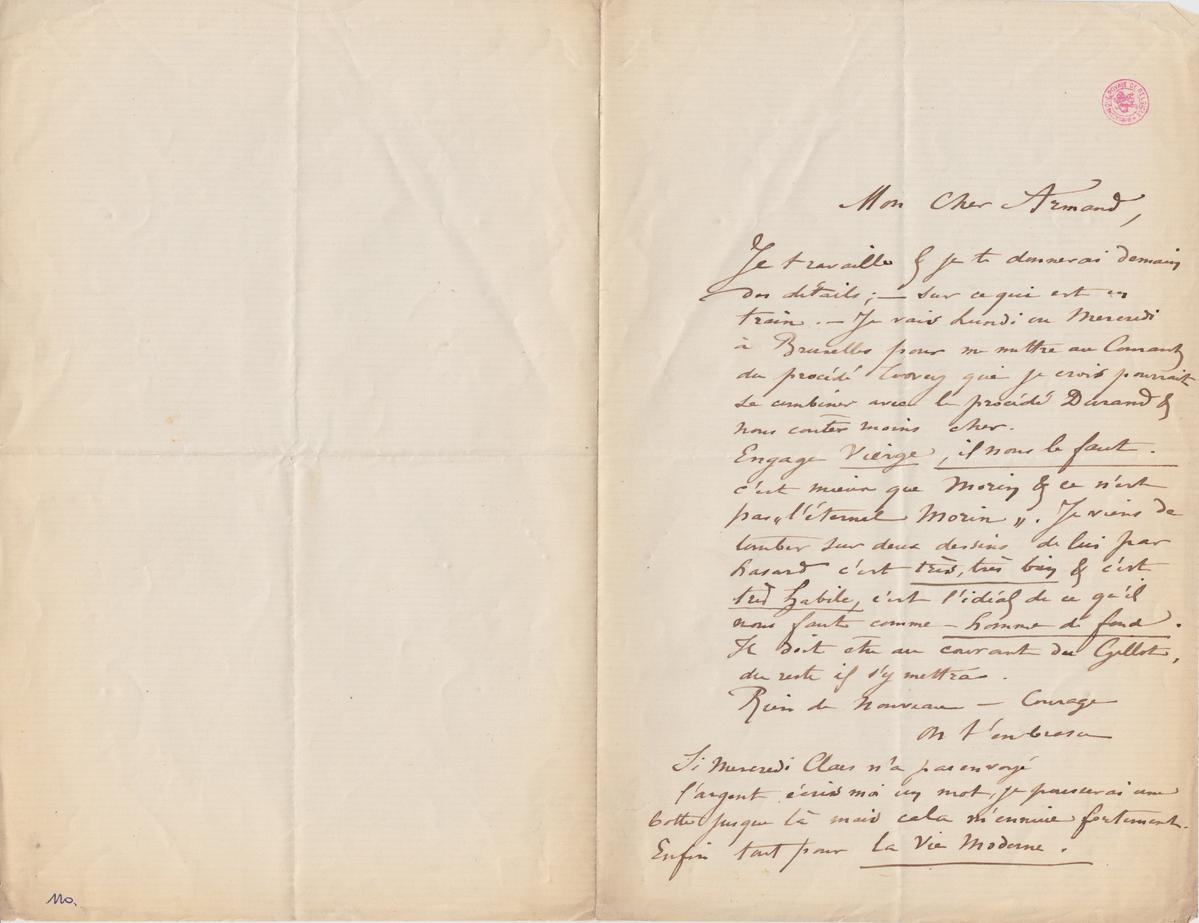 Mon Cher Armand,
Je travaille & je te donnerai demain
des détails; — sur ce qui est en
train. — Je vais Lundi ou Mercredi
à Bruxelles pour me mettre au Courant
du procédé que je crois pourrait
se combiner avec le procédé Durand &
nous coûter moins cher.
Engage Vierge, il nous le faut.
c'est mieux que Morin & ce n'est
pas „l'éternel Morin". Je viens de
tomber sur deux dessins de lui par
hasard c'est très, très bien & c'est
très habile, c'est l'idéal de ce qu'il
nous faut comme — homme de fond.
Il doit être au courant du Gillot,
du reste il s'y mettra.
Rien de Nouveau — Courage
on t'embrasse
Si Mercredi Claes n'a pas envoyé
l'argent écris moi un mot, je pousserai une
botte jusque là mais cela m'ennuie fortement.
Enfin tout pour La Vie Moderne.
110.